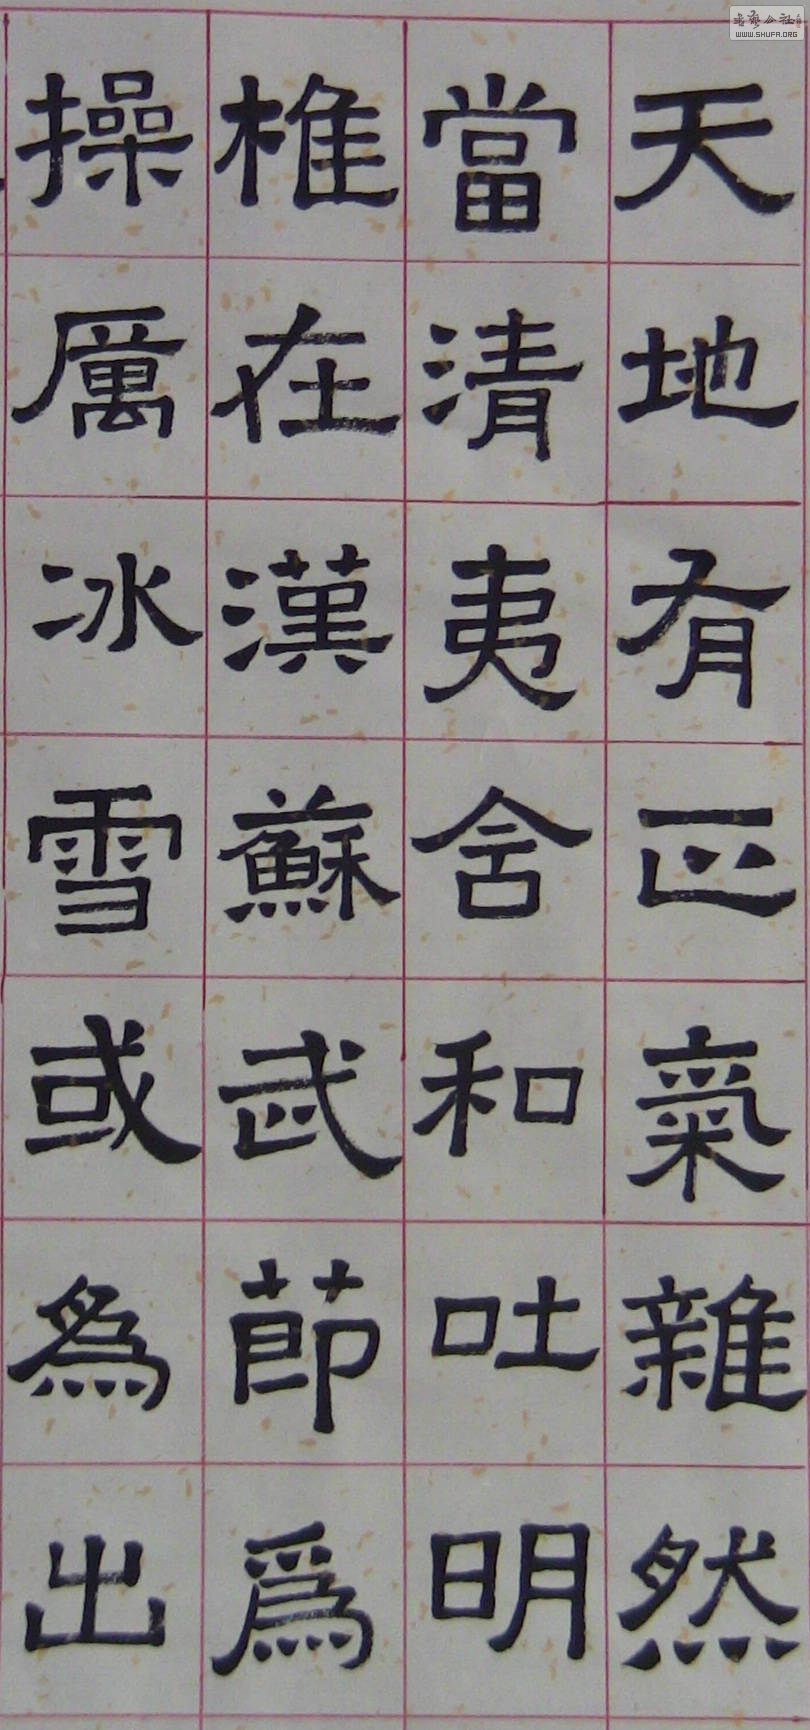 天地有正氣雜然
當清夷含和吐明
椎在漢蘇武節為
操厲冰雪或為出
WWW.SHUFA.ORG